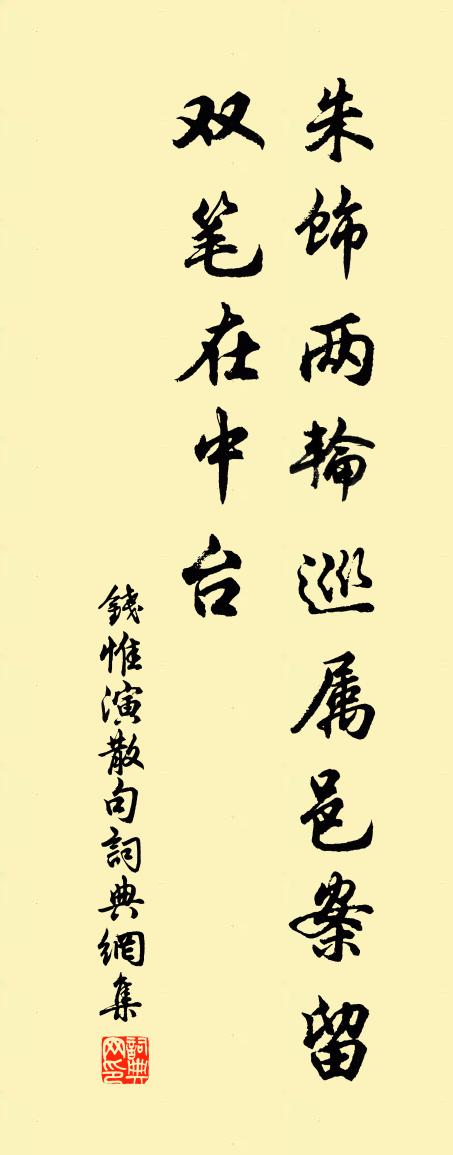 朱飾两輪巡属邑案留
双笔在中台
錢惟演散句詞典網集
詞典网印